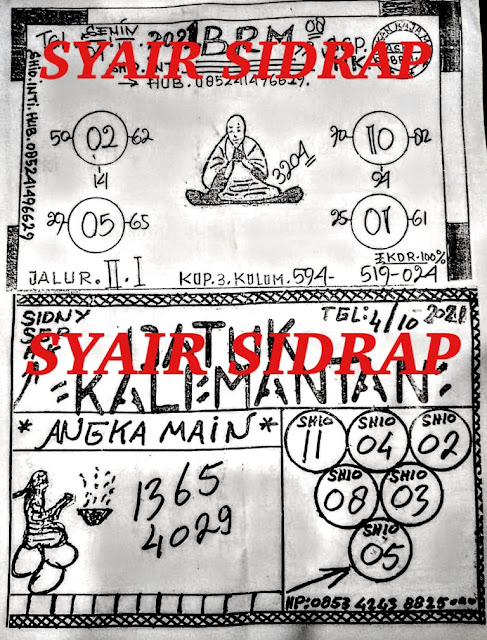 TEL: SENIN
2021
BRM
SYAIR SIDRAP
→ HUB. 085241496629.
SHIO. INTI. HUB. 085241496629
50 02 62
90 10 82
3204
11
94
29 05 65
25 01 61
EKOR-100%
JALUR. II. I
KOP. 3. KOLOM. 594-
519-024
SIDNY
TEL: 4/10-2021
DATUK
SYAIR SIDRAP
KALIMANTAN
* ANGKA MAIN *
SHIO 11
SHIO 04
SHIO 02
1365
4029
SHIO 08
SHIO 03
SHIO 05
HP: 0853 4243 8825